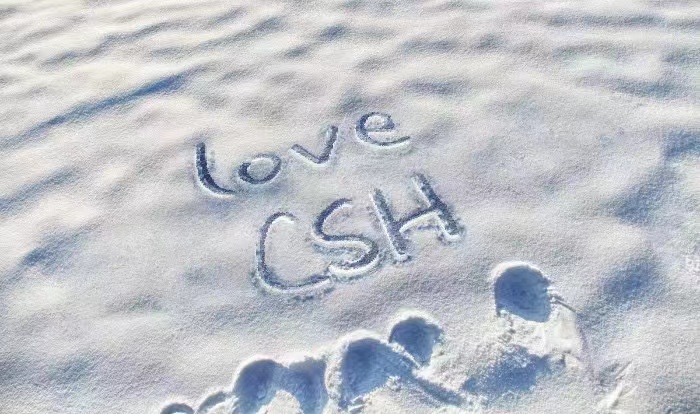 love
CSH